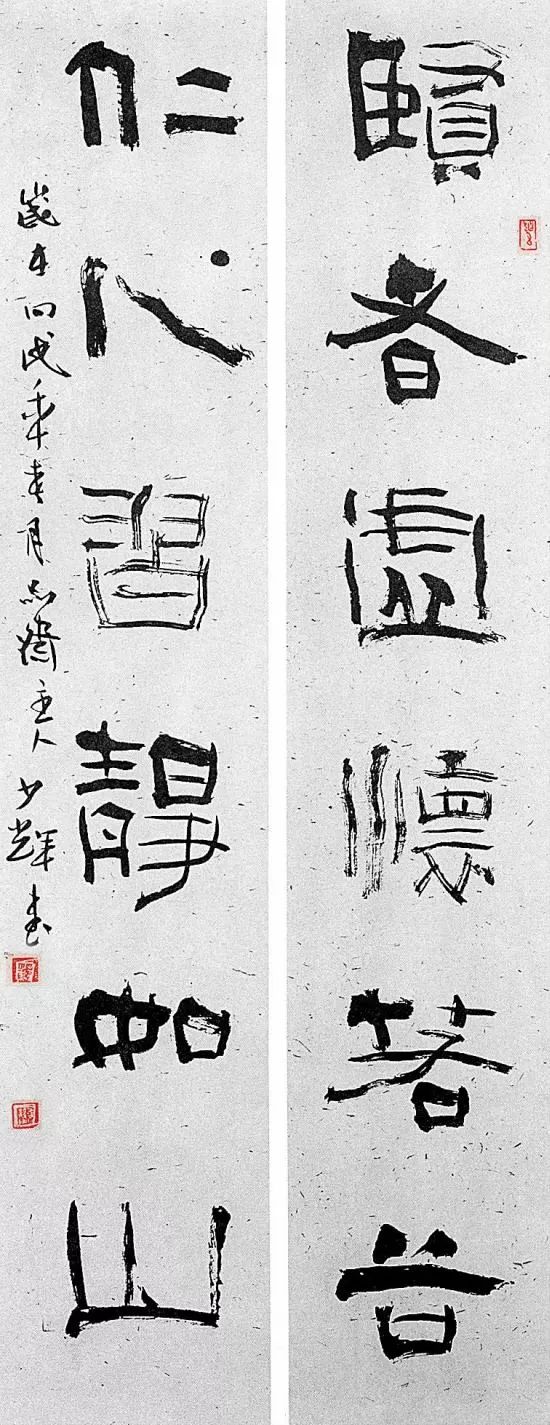 賢者虛懷若谷
仁人習靜如山
歲在丙戌年春月齋主人少輝書